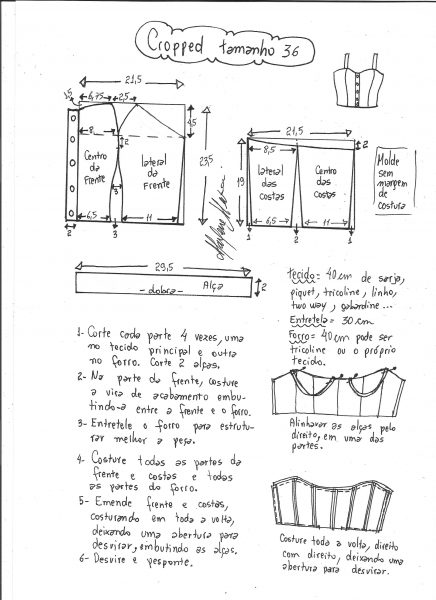 Cropped tamanho 36
21,5
1,5
6,75
2,5
4,5
8
2
Centro
da
Frente
lateral
da
Frente
3
23,5
6,5
11
2
3
Marlene Mukai
21,5
2
8,5
19
lateral
das
costas
Centro
das
costas
6,5
11
1
2
1
Molde
sem
margem
de
costura
29,5
- dobra -
Alça
2
tecido = 40 cm de sarja,
piquet, tricoline, linho,
two way, gabardine...
Entretela = 30 cm
Forro = 40 cm pode ser
tricoline ou o próprio
tecido.
1- Corte cada parte 4 vezes, uma
no tecido principal e outra
no forro. Corte 2 alças.
2- Na parte da frente, costure
a vira de acabamento embu-
tindo-a entre a frente e o forro.
3- Entretele o forro para estrutu-
rar melhor a peça.
4- Costure todas as partes da
frente e costas e todas
as partes do forro.
5- Emende frente e costas,
costurando em toda a volta,
deixando uma abertura para
desvirar, embutindo as alças.
6- Desvire e pesponte.
Alinhavar as alças pelo
direito, em uma das
partes.
Costure toda a volta, direito
com direito, deixando uma
abertura para desvirar.